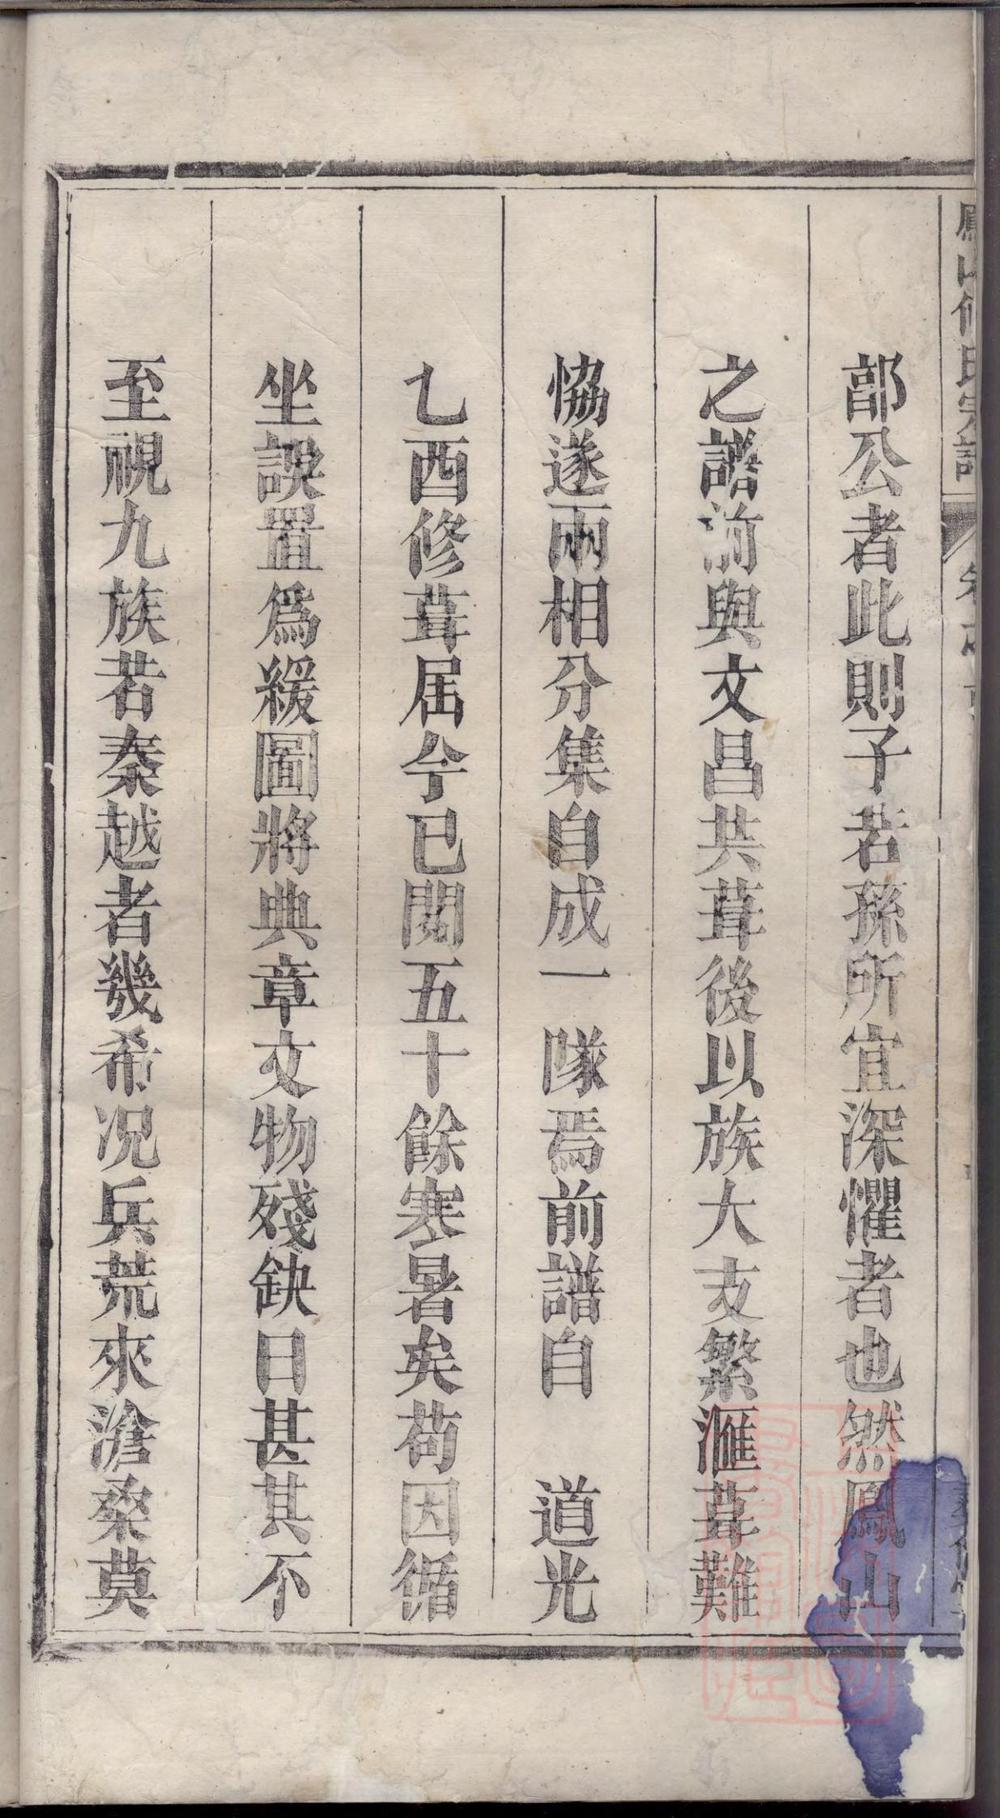 部公者此則子若孫所宜深懼者也然鳳山
之譜前與文昌共葺後以族大支繁滙葺難
恊遂兩相分集自成一隊焉前譜自　道光
乚酉修葺屆今已閱五十餘寒暑矣苟因循
坐誤置為緩圖將典章文物殘缺日甚其不
至視九族若秦越者幾希况兵荒來滄桑莫